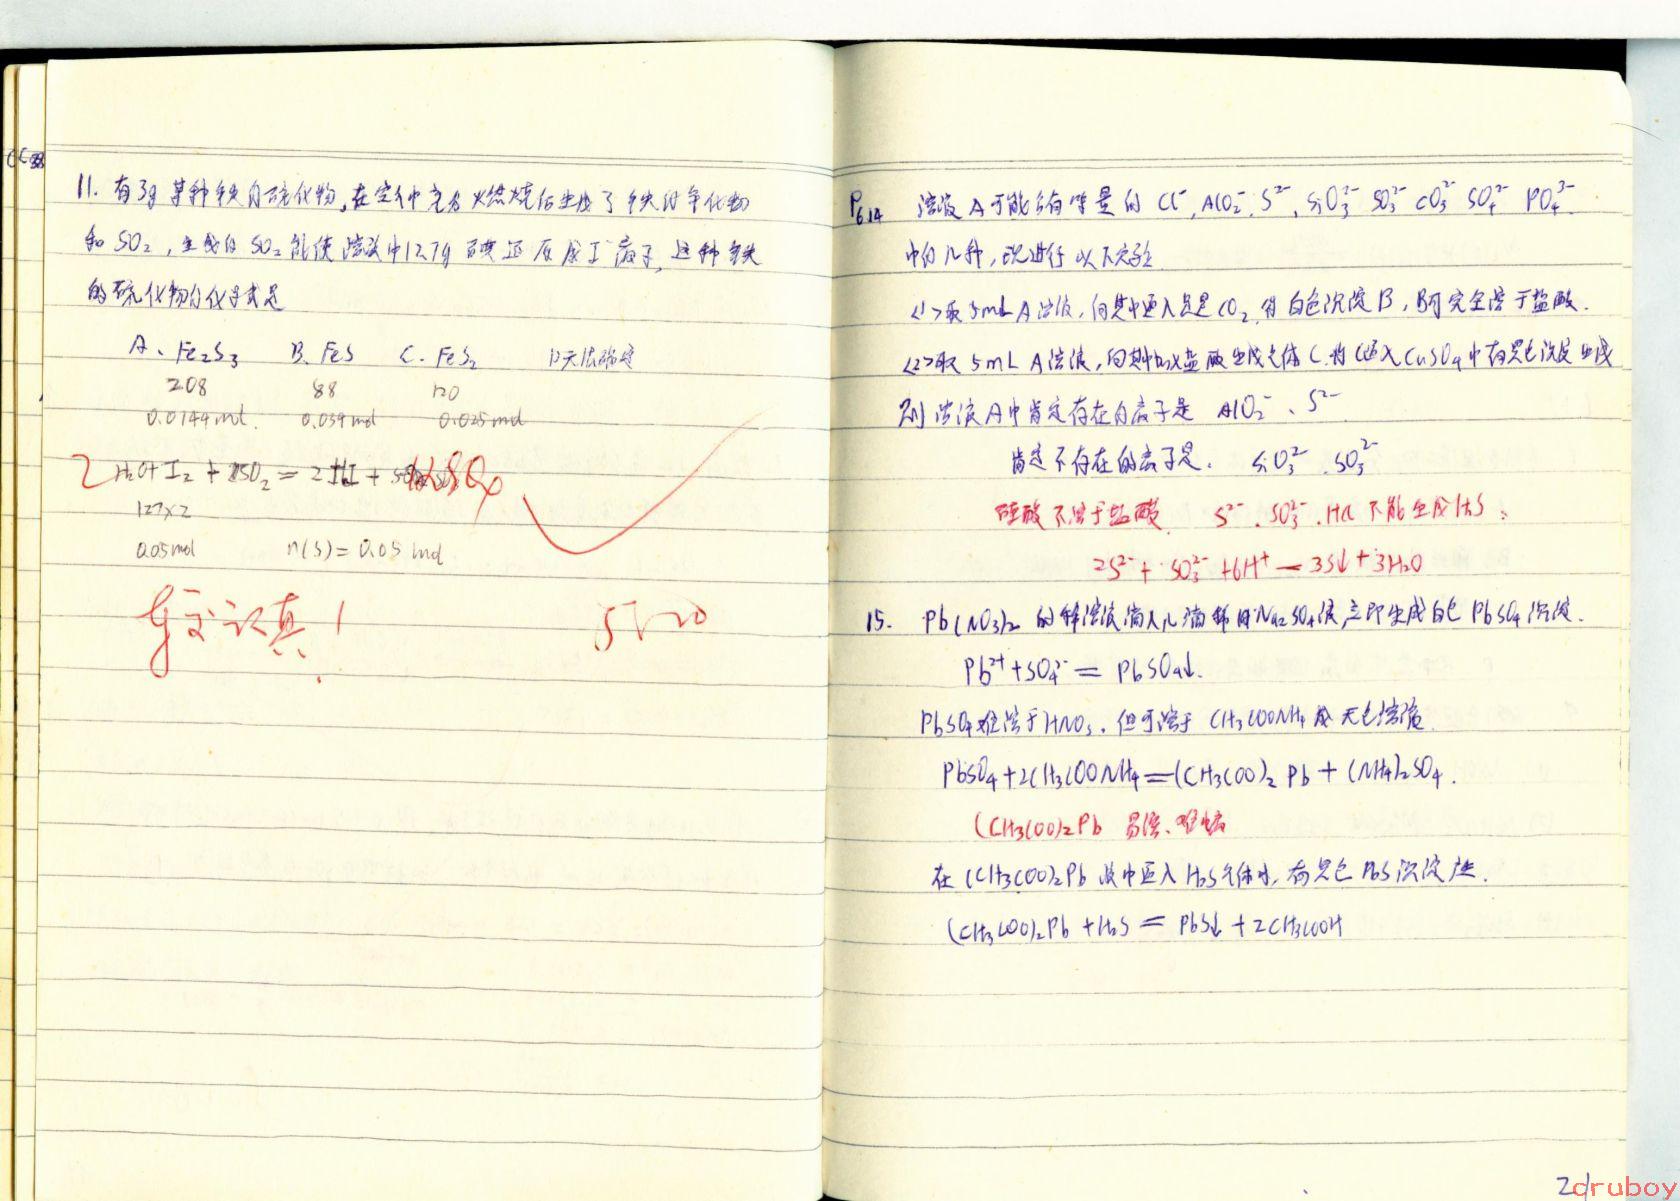 11. 有3g某种铁的硫化物,在空气中充分燃烧后生成了铁的氧化物
和SO₂,生成的SO₂能使溶液中12.7g碘还原成I⁻离子,这种铁
的硫化物的化学式是
A、Fe₂S₃ B、FeS C. FeS₂ D无法确定
208 88 120
0.0144mol. 0.034mol 0.025mol
2H₂O+I₂+SO₂=2HI+H₂SO₄
127×2
0.05mol n(S)=0.05mol
认真!
5.20
P6.14 溶液A可能含有等量的Cl⁻,AlO₂⁻,S²⁻,SiO₃²⁻ SO₃²⁻ CO₃²⁻ SO₄²⁻ PO₄³⁻.
中的几种,现进行以下实验
<1>取5mLA溶液,向其中通入足量CO₂,有白色沉淀B,B可完全溶于盐酸.
<2>取5mL A溶液,向其中加入盐酸生成气体C.将C通入CuSO₄中有黑色沉淀生成
则溶液A中肯定存在的离子是 AlO₂⁻、S²⁻
肯定不存在的离子是. SiO₃²⁻.SO₃²⁻
硅酸不溶于盐酸. S²⁻.SO₃²⁻.HCl不能生成H₂S;
2S²⁻+SO₃²⁻+6H⁺—3S↓+3H₂O
15. Pb(NO₃)₂的稀溶液滴入几滴稀Na₂SO₄液,立即生成白色PbSO₄沉淀.
Pb²⁺+SO₄²⁻=PbSO₄↓.
PbSO₄难溶于HNO₃,但可溶于CH₃COONH₄成无色溶液.
PbSO₄+2CH₃COONH₄=(CH₃COO)₂Pb+(NH₄)₂SO₄.
(CH₃COO)₂Pb 易溶、难电离
在(CH₃COO)₂Pb液中通入H₂S气体时,有黑色PbS沉淀生.
(CH₃COO)₂Pb+H₂S=PbS↓+2CH₃COOH
cruboy